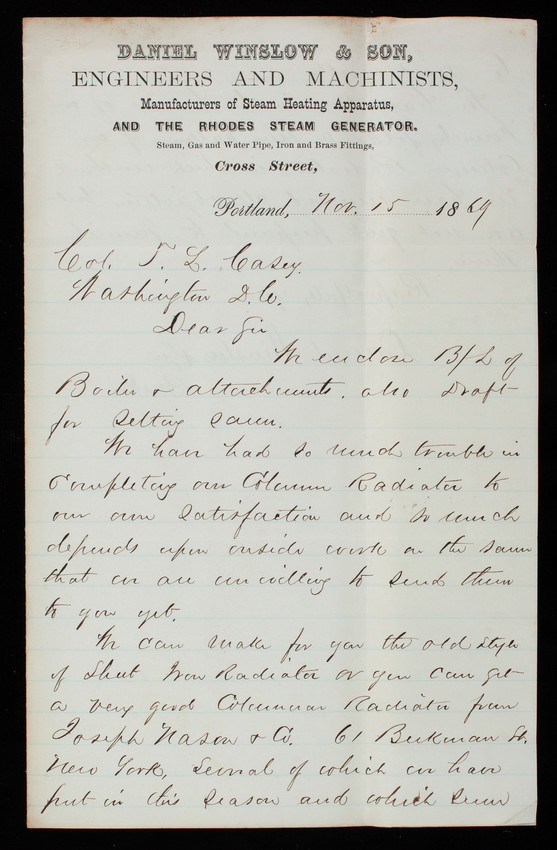 DANIEL WINSLOW & SON,
ENGINEERS AND MACHINISTS,
Manufacturers of Steam Heating Apparatus,
AND THE RHODES STEAM GENERATOR.
Steam, Gas and Water Pipe, Iron and Brass Fittings,
Cross Street,
Portland, Nov. 15 1869
Col. T. L. Casey.
Washington D.C.
Dear Sir
We enclose B/L of
Boiler & attachments. also Draft
for setting same.
We have had so much trouble in
completing our Column Radiator to
our own satisfaction and so much
depends upon outside work on the same
that we are unwilling to send them
to you yet.
We can make for you the old style
of Sheet Iron Radiator or you can get
a very good Columnar Radiator from
Joseph Nason & Co. 61 Beekman St.
New York, several of which we have
put in this season and which seem